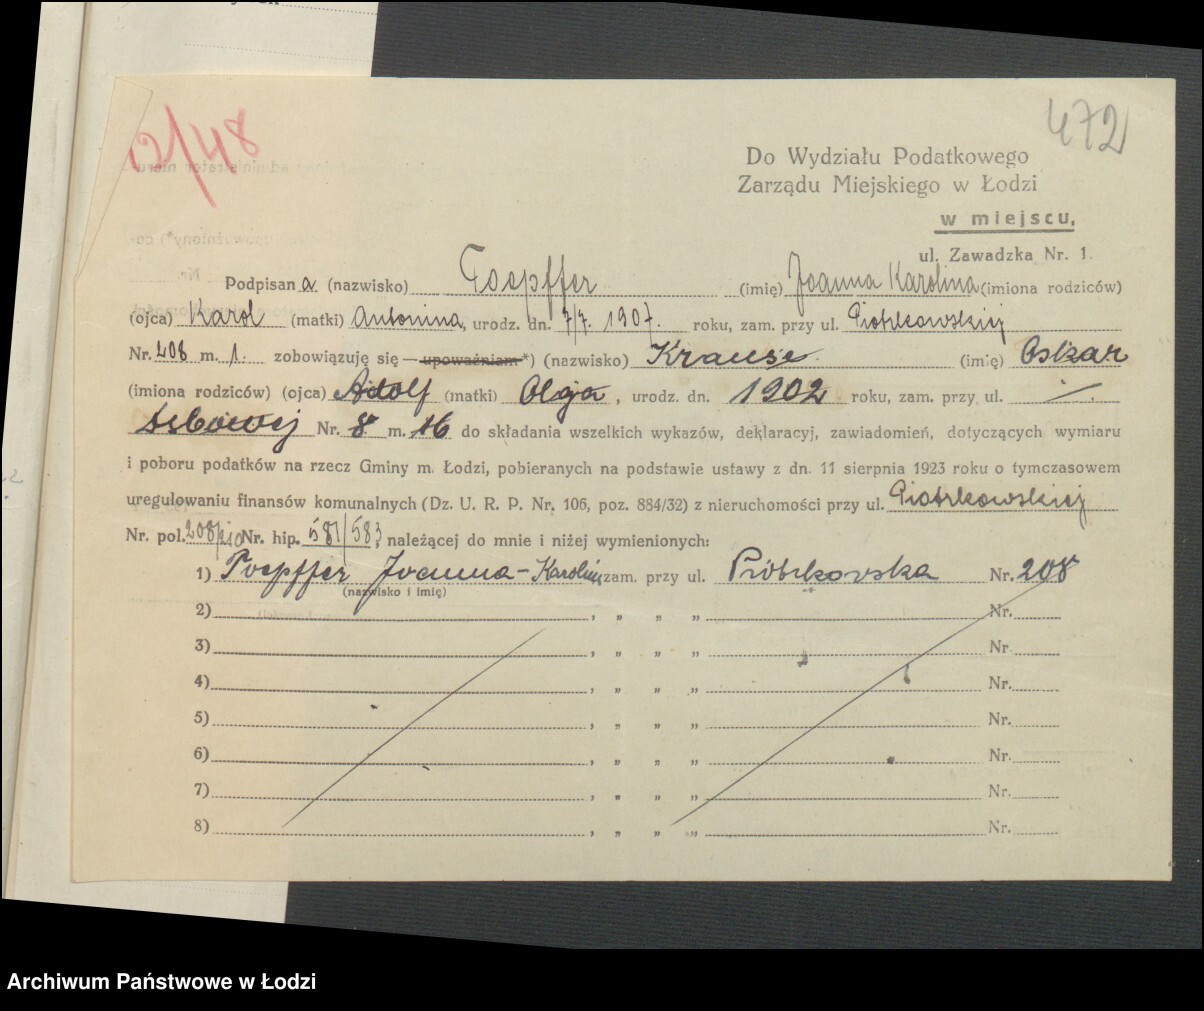 12/48
472
Do Wydziału Podatkowego
Zarządu Miejskiego w Łodzi
w miejscu,
ul. Zawadzka Nr. 1.
Podpisana (nazwisko) Toepffer (imię) Joanna Karolina (imiona rodziców)
(ojca) Karol (matki) Antonina, urodz. dn. 7/7. 1907. roku, zam. przy ul. Piotrkowskiej
Nr. 208 m. 1. zobowiązuję się — upoważniam *) (nazwisko) Krause (imię) Oskar
(imiona rodziców) (ojca) Adolf (matki) Olga, urodz. dn. 1902 roku, zam. przy ul.
Nr. 8 m. 16 do składania wszelkich wykazów, deklaracyj, zawiadomień, dotyczących wymiaru
i poboru podatków na rzecz Gminy m. Łodzi, pobieranych na podstawie ustawy z dn. 11 sierpnia 1923 roku o tymczasowem
uregulowaniu finansów komunalnych (Dz. U. R. P. Nr. 106, poz. 884/32) z nieruchomości przy ul. Piotrkowskiej
Nr. pol. 208/210 Nr. hip. 581/583, należącej do mnie i niżej wymienionych:
1) Toepffer Joanna - Karolina zam. przy ul. Piotrkowska Nr. 208
(nazwisko i imię)
2) , „ „ „ Nr.
3) , „ „ „ Nr.
4) , „ „ „ Nr.
5) , „ „ „ Nr.
6) , „ „ „ Nr.
7) , „ „ „ Nr.
8) , „ „ „ Nr.
Archiwum Państwowe w Łodzi